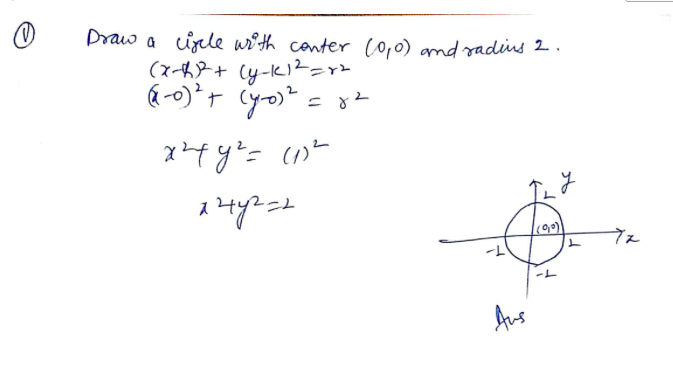 (V) Draw a circle with center (0,0) and radius 2.
(x-h)²+ (y-k)²=r²
(x-0)²+ (y-0)² = r²
x²+y²= (1)²
x²+y²=1
y
1
(0,0)
-1
1
x
-1
Ans